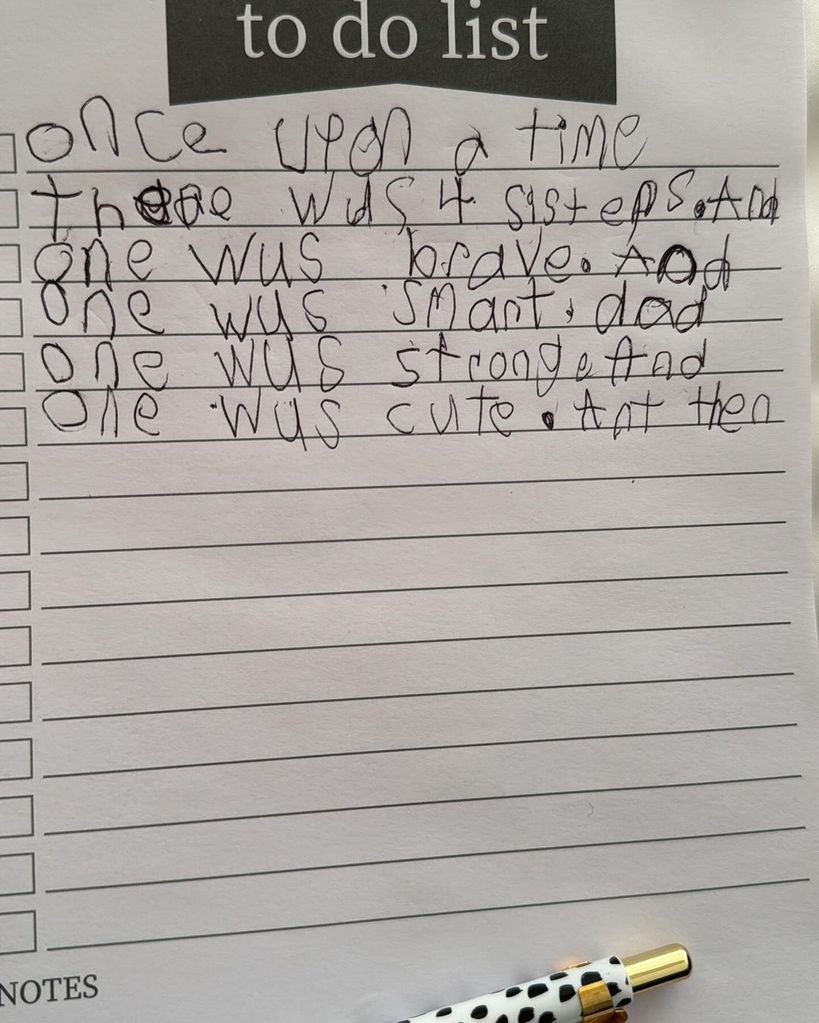 to do list
once upon a time
there wus 4 sisteps. And
one wus brave. And
one wus smart. dad
one wus strong. And
one wus cute. Ant then
NOTES